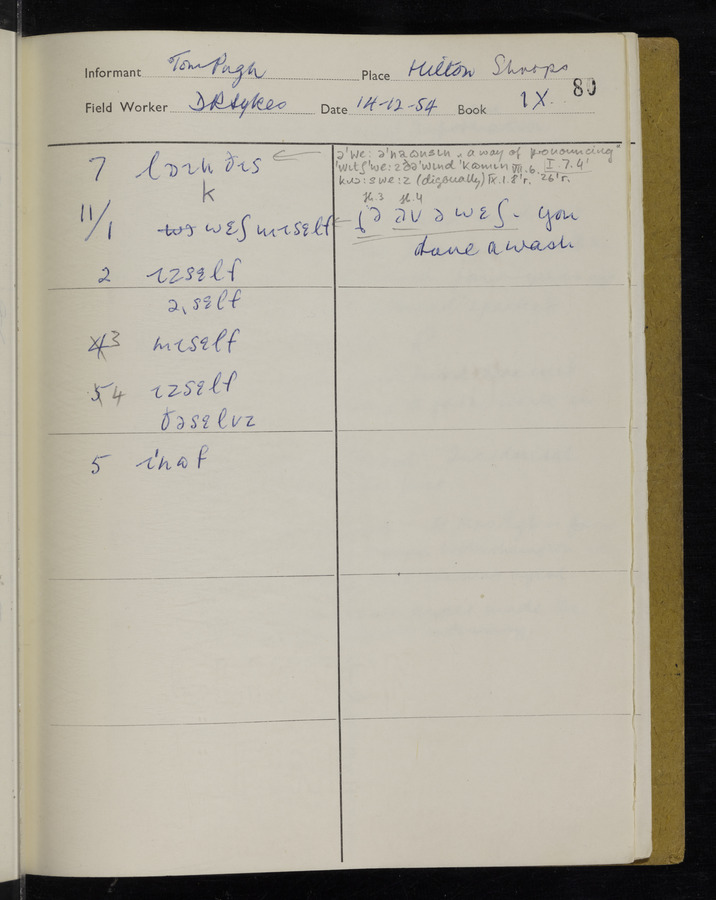 Informant Tom Pugh Place Hilton Shrops
80
Field Worker D R Sykes Date 14-12-54 Book IX.
7 ðɪs
k
ə'we: a way of pronouncing"
'wɪtʃ we:z ðə 'wɪnd VII.6. I.7.4'
swe:z (diagonally) IX.1.8'r. 26'r.
11/1 weʃ mɪself
sh.3 sh.4
əv ə weʃ - you
have a wash
2 ɪzself
self
4 3 mɪself
5 4 ɪzself
ðəselvz
5 ɪ'nɷf